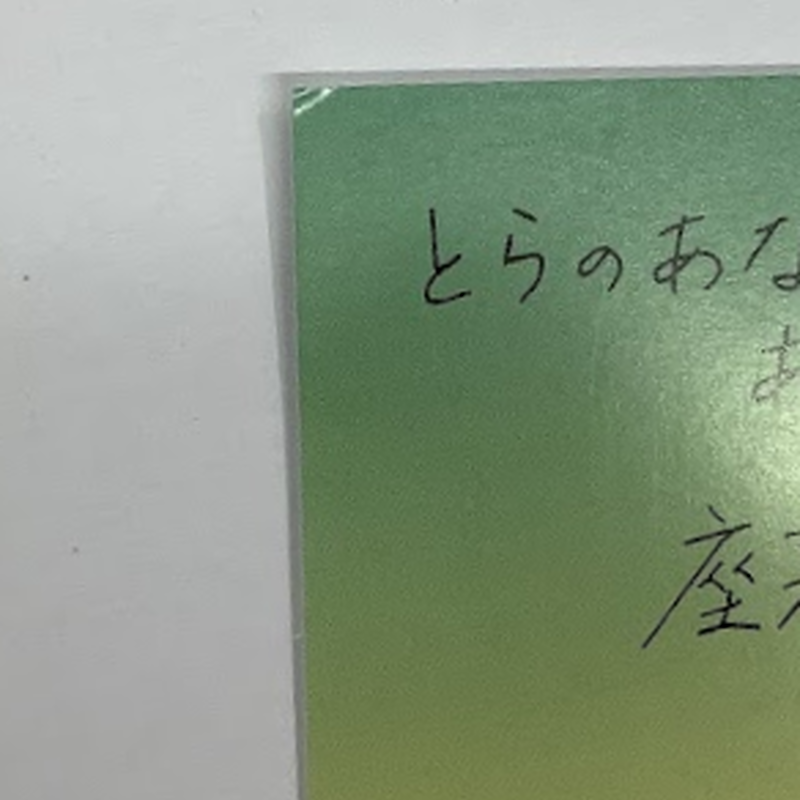 とらのあな
あ
座